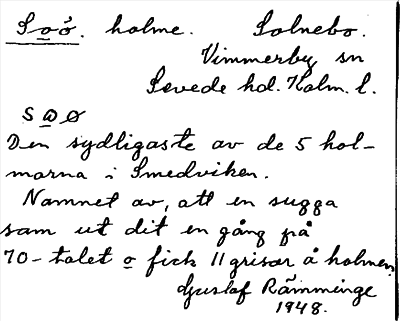 Soö. holme. Solnebo.
Vimmerby sn
Sevede hd. Kalm. l.
s ω ø
Den sydligaste av de 5 hol-
marna i Smedviken.
Namnet av, att en sugga
sam ut dit en gång på
70-talet o fick 11 grisar å holmen.
Gustaf Rämminge
1948.